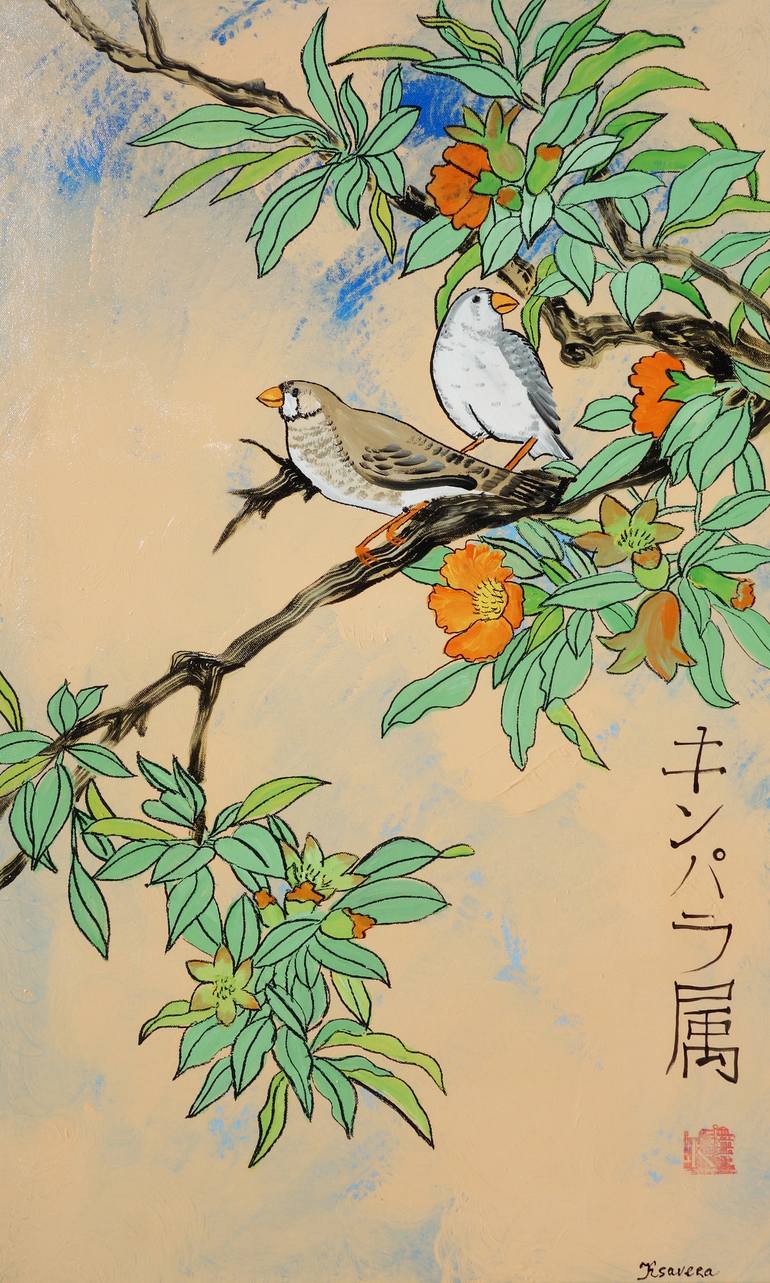 キンパラ属
Ksavera